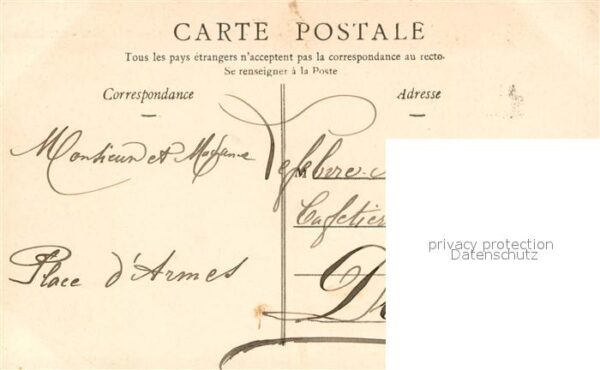 CARTE POSTALE
Tous les pays étrangers n'acceptent pas la correspondance au recto-
Se renseigner à la Poste
Correspondance
Adresse
Monsieur et Madame Lefebvre
M
Cafetier
Place d'Armes
privacy protection
Datenschutz